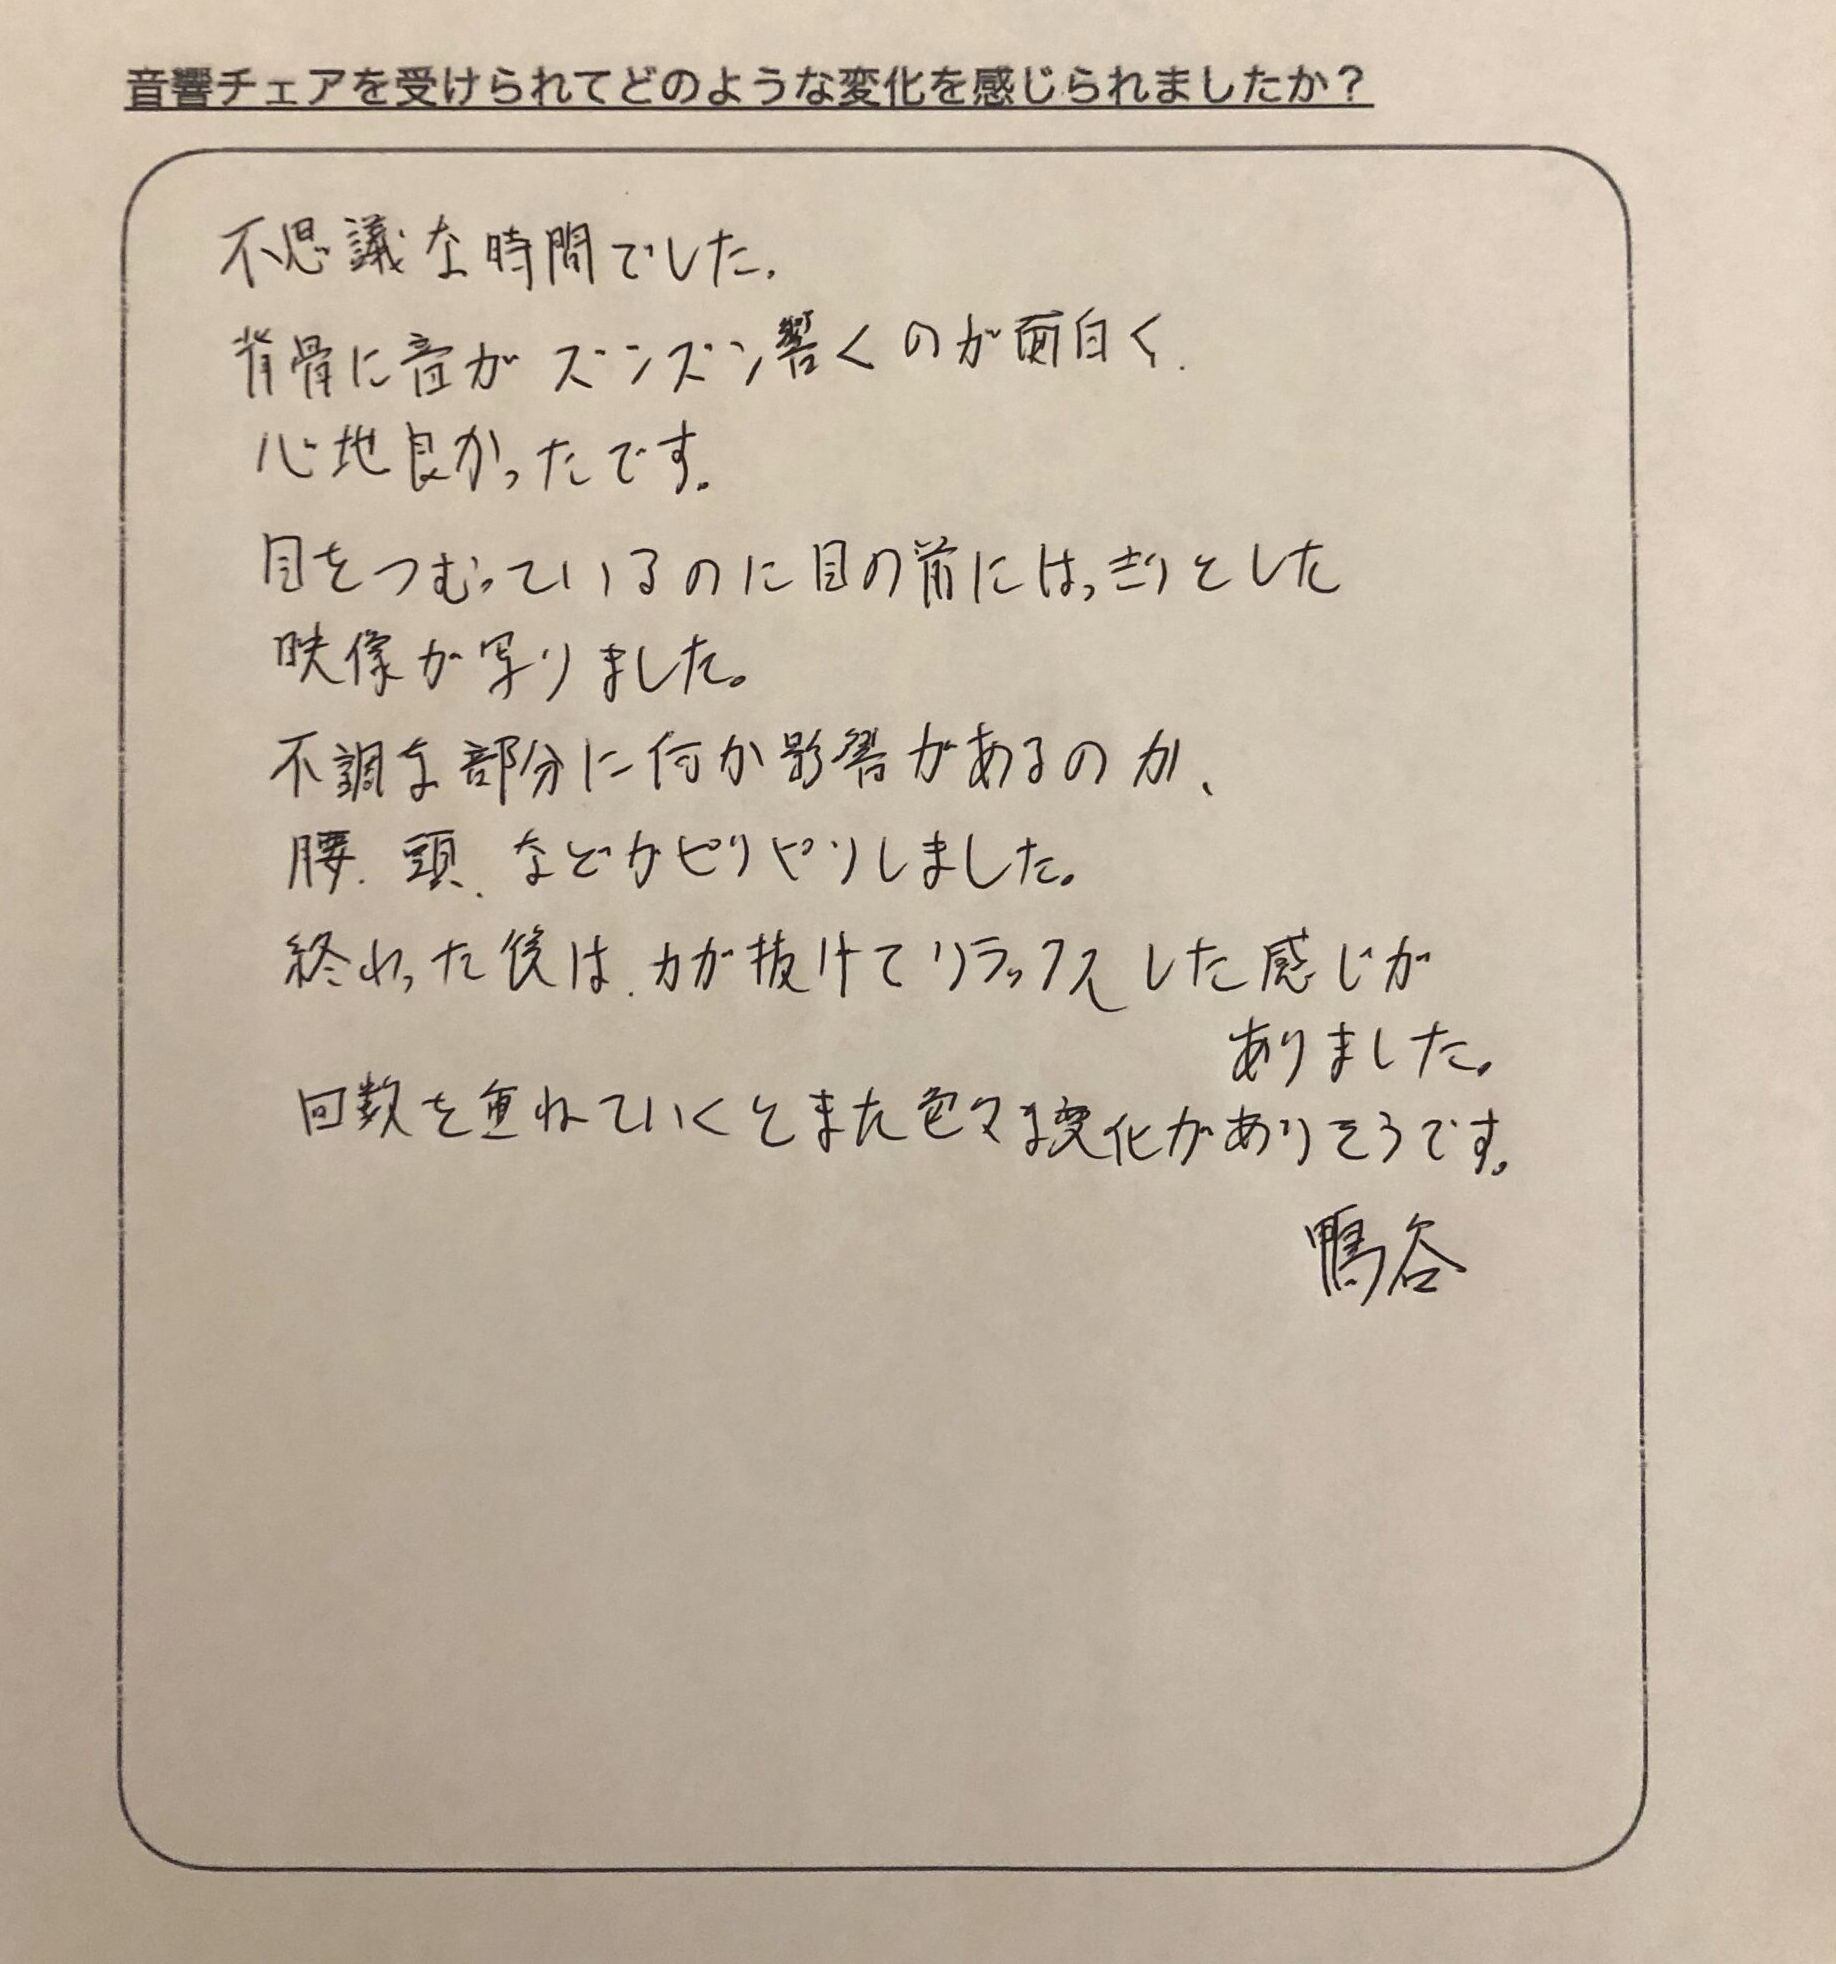 音響チェアを受けられてどのような変化を感じられましたか？
不思議な時間でした.
背骨に音がズンズン響くのが面白く.
心地良かったです。
目をつむっているのに目の前にはっきりとした
映像が写りました。
不調な部分に何か影響があるのか、
腰、頭、などがピリピリしました。
終わった後は、力が抜けてリラックスした感じが
ありました。
回数を重ねていくとまた色々な変化がありそうです。
鴨谷